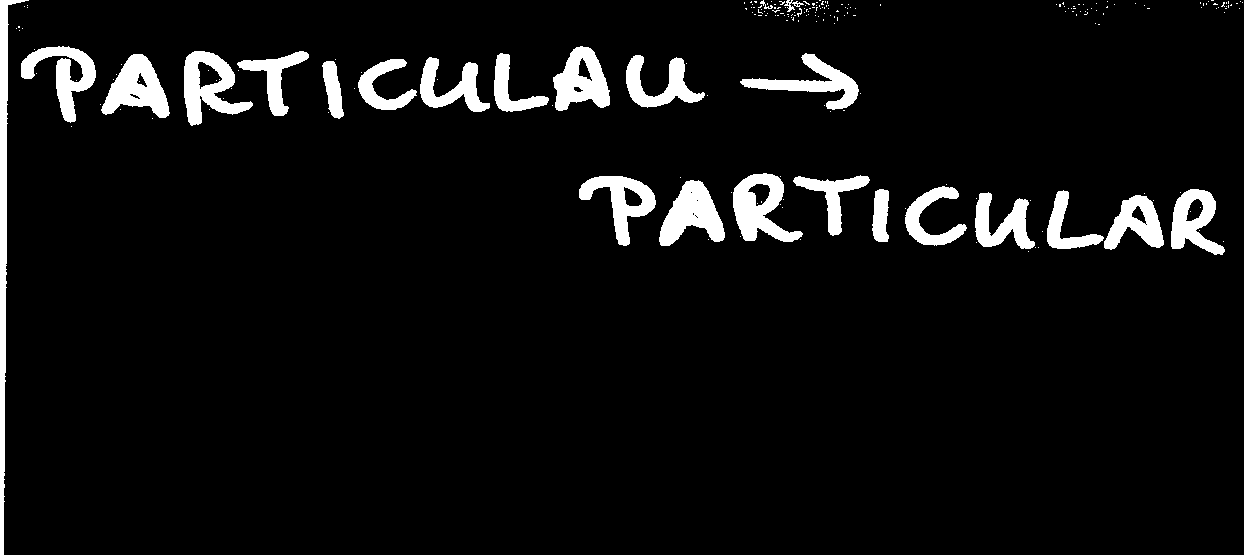 PARTICULAU →
PARTICULAR